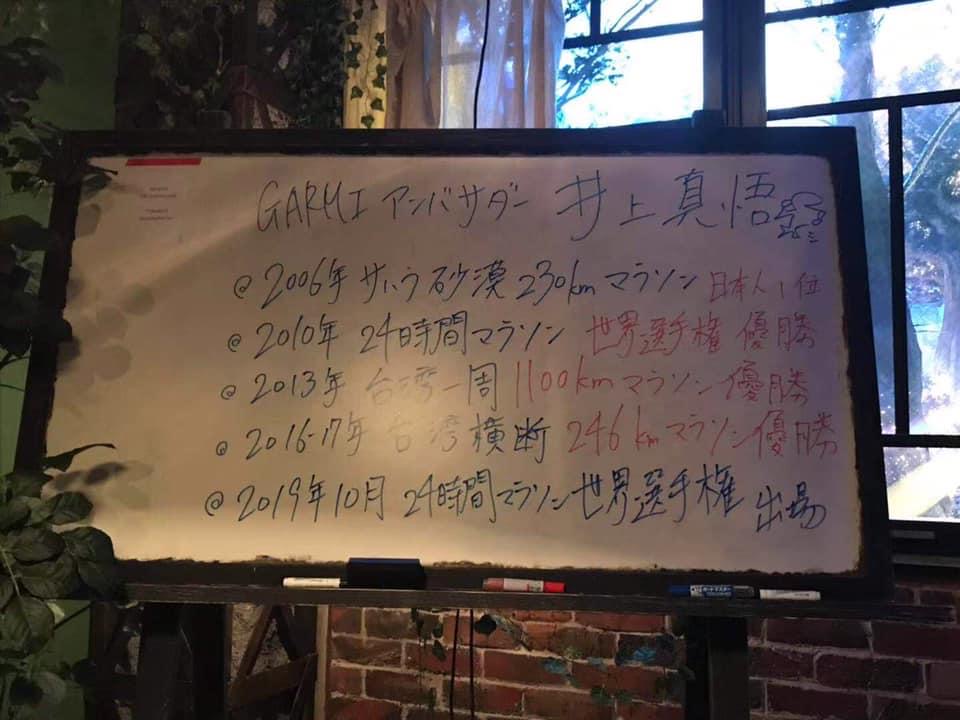 GARMI アンバサダー 井上真悟
@ 2006年 サハラ砂漠 230km マラソン 日本人1位
@ 2010年 24時間マラソン 世界選手権 優勝
@ 2013年 台湾一周 1100kmマラソン優勝
@ 2016-17年 台湾横断 246kmマラソン優勝
@ 2019年10月 24時間マラソン世界選手権 出場